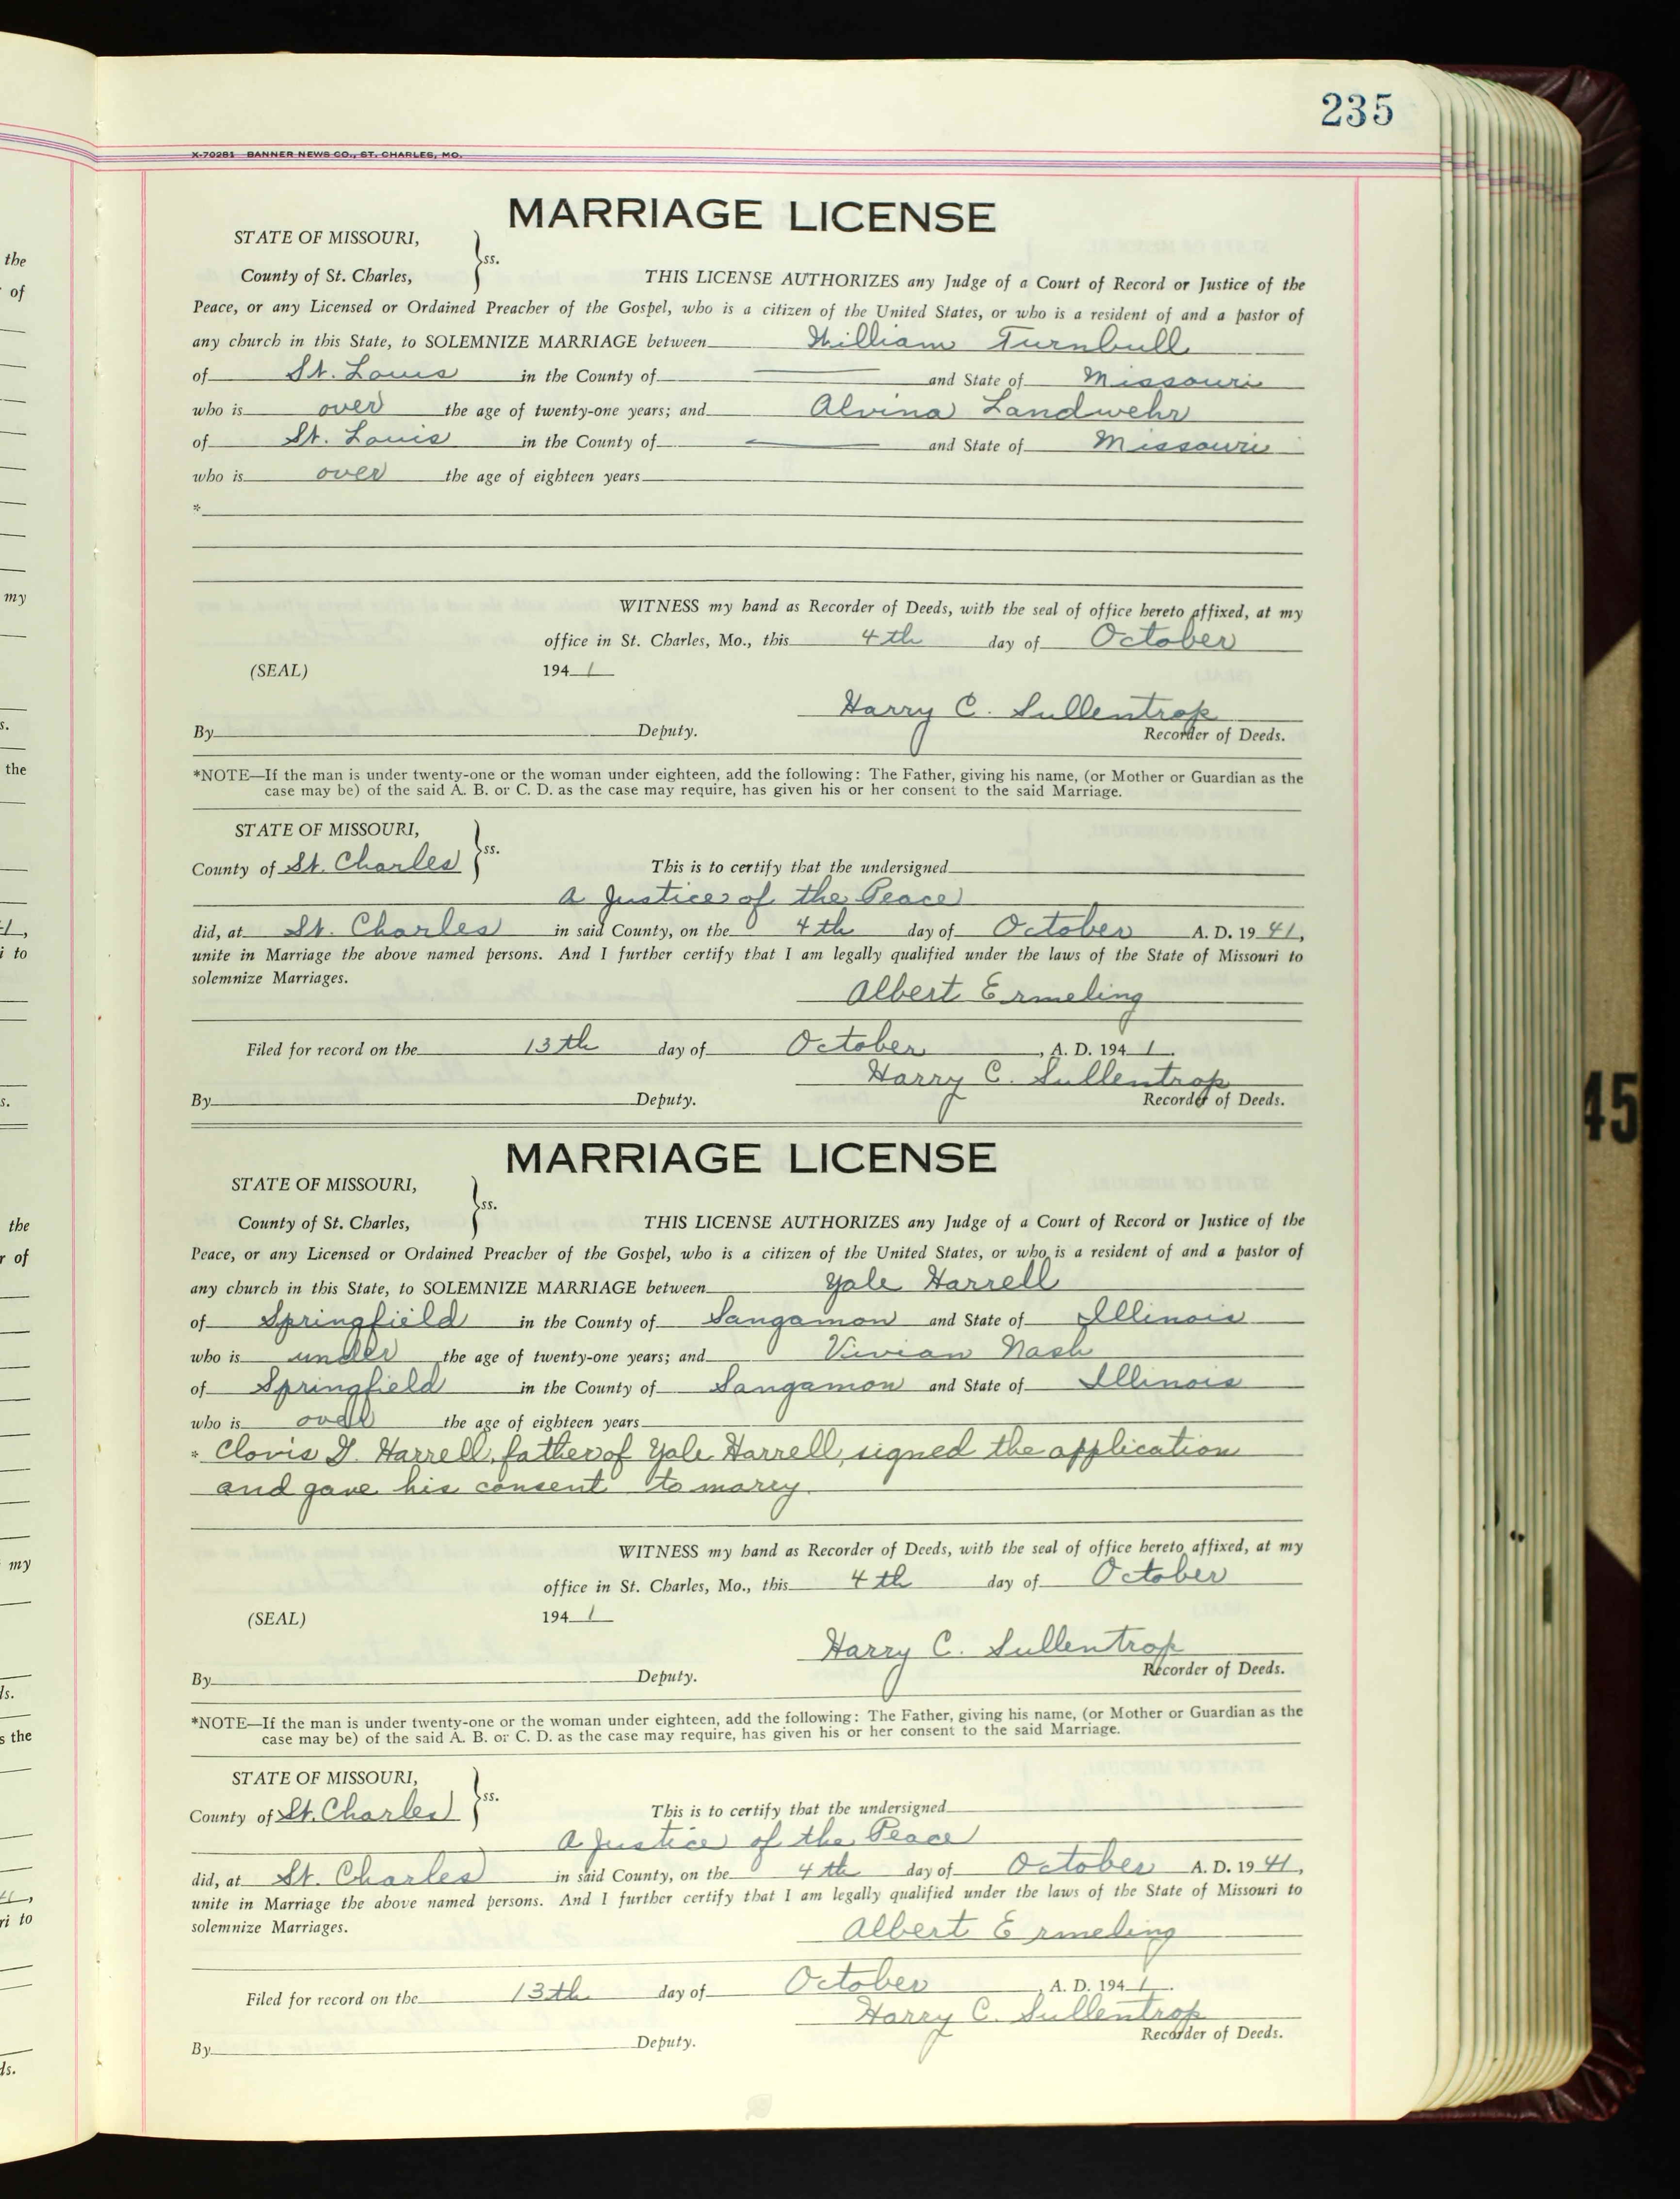 235
X-70281 BANNER NEWS CO., ST. CHARLES, MO.
MARRIAGE LICENSE
STATE OF MISSOURI,
County of St. Charles, ss.
THIS LICENSE AUTHORIZES any Judge of a Court of Record or Justice of the
Peace, or any Licensed or Ordained Preacher of the Gospel, who is a citizen of the United States, or who is a resident of and a pastor of
any church in this State, to SOLEMNIZE MARRIAGE between William Turnbull
of St. Louis in the County of and State of Missouri
who is over the age of twenty-one years; and Alvina Landwehr
of St. Louis in the County of and State of Missouri
who is over the age of eighteen years
*
WITNESS my hand as Recorder of Deeds, with the seal of office hereto affixed, at my
office in St. Charles, Mo., this 4th day of October
(SEAL) 1941
Harry C. Sullentrop
By Deputy. Recorder of Deeds.
*NOTE—If the man is under twenty-one or the woman under eighteen, add the following: The Father, giving his name, (or Mother or Guardian as the
case may be) of the said A. B. or C. D. as the case may require, has given his or her consent to the said Marriage.
STATE OF MISSOURI,
County of St. Charles ss. This is to certify that the undersigned
a Justice of the Peace
did, at St. Charles in said County, on the 4th day of October A. D. 1941,
unite in Marriage the above named persons. And I further certify that I am legally qualified under the laws of the State of Missouri to
solemnize Marriages.
Albert Ermeling
Filed for record on the 13th day of October, A. D. 1941.
Harry C. Sullentrop
By Deputy. Recorder of Deeds.
MARRIAGE LICENSE
STATE OF MISSOURI,
County of St. Charles, ss.
THIS LICENSE AUTHORIZES any Judge of a Court of Record or Justice of the
Peace, or any Licensed or Ordained Preacher of the Gospel, who is a citizen of the United States, or who is a resident of and a pastor of
any church in this State, to SOLEMNIZE MARRIAGE between Yale Harrell
of Springfield in the County of Sangamon and State of Illinois
who is under the age of twenty-one years; and Vivian Nash
of Springfield in the County of Sangamon and State of Illinois
who is over the age of eighteen years
* Clovis G. Harrell, father of Yale Harrell, signed the application
and gave his consent to marry.
WITNESS my hand as Recorder of Deeds, with the seal of office hereto affixed, at my
office in St. Charles, Mo., this 4th day of October
(SEAL) 1941
Harry C. Sullentrop
By Deputy. Recorder of Deeds.
*NOTE—If the man is under twenty-one or the woman under eighteen, add the following: The Father, giving his name, (or Mother or Guardian as the
case may be) of the said A. B. or C. D. as the case may require, has given his or her consent to the said Marriage.
STATE OF MISSOURI,
County of St. Charles ss. This is to certify that the undersigned
a Justice of the Peace
did, at St. Charles in said County, on the 4th day of October A. D. 1941,
unite in Marriage the above named persons. And I further certify that I am legally qualified under the laws of the State of Missouri to
solemnize Marriages.
Albert Ermeling
Filed for record on the 13th day of October, A. D. 1941.
Harry C. Sullentrop
By Deputy. Recorder of Deeds.
45